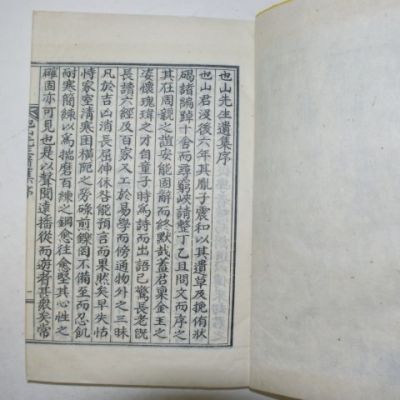 也山先生遺集序
也山君沒後六年其胤子震和以其遺草及挽侑狀
碣諸編踔十舍而尋窮峽請整丁乙且問文而序之
其在周親之誼安能固辭而終默哉蓋君稟金玉之
姿懷瑰瑋之才自童子時爲詩而出語已驚長老旣
長讀六經及百家又工於易學而傍通物外之三昧
凡於吉凶消長屈伸休咎能預言而果然矣早失怙
恃家室淸寒困橫阨之勞碌煎鑠罔不備至而忍飢
耐寒簡練以爲揣磨百練之鋼愈往愈堅其心性之
確固亦可見也是以聲聞遠播從而遊者甚衆矣常